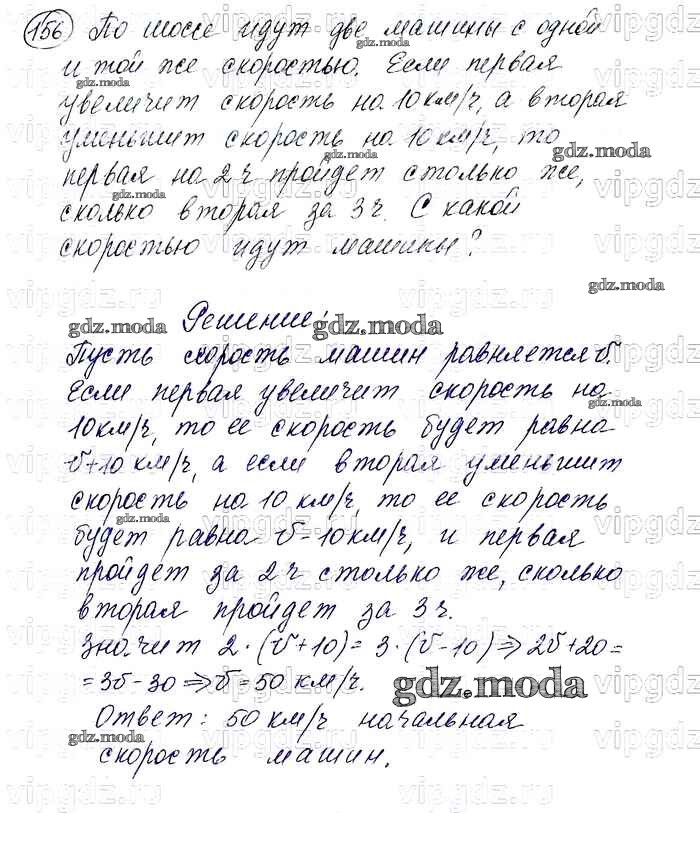 156 По шоссе идут две машины с одной
и той же скоростью. Если первая
увеличит скорость на 10 км/ч, а вторая
уменьшит скорость на 10 км/ч, то
первая на 2 ч пройдет столько же,
сколько вторая за 3 ч. С какой
скоростью идут машины?
Решение:
Пусть скорость машин равняется v.
Если первая увеличит скорость на
10 км/ч, то ее скорость будет равна
v+10 км/ч, а если вторая уменьшит
скорость на 10 км/ч, то ее скорость
будет равна v-10 км/ч, и первая
пройдет за 2 ч столько же, сколько
вторая пройдет за 3 ч.
Значит 2·(v+10)=3·(v-10)⇒2v+20=
=3v-30⇒v=50 км/ч.
Ответ: 50 км/ч начальная
скорость машин.
gdz.moda
vipgdz.ru